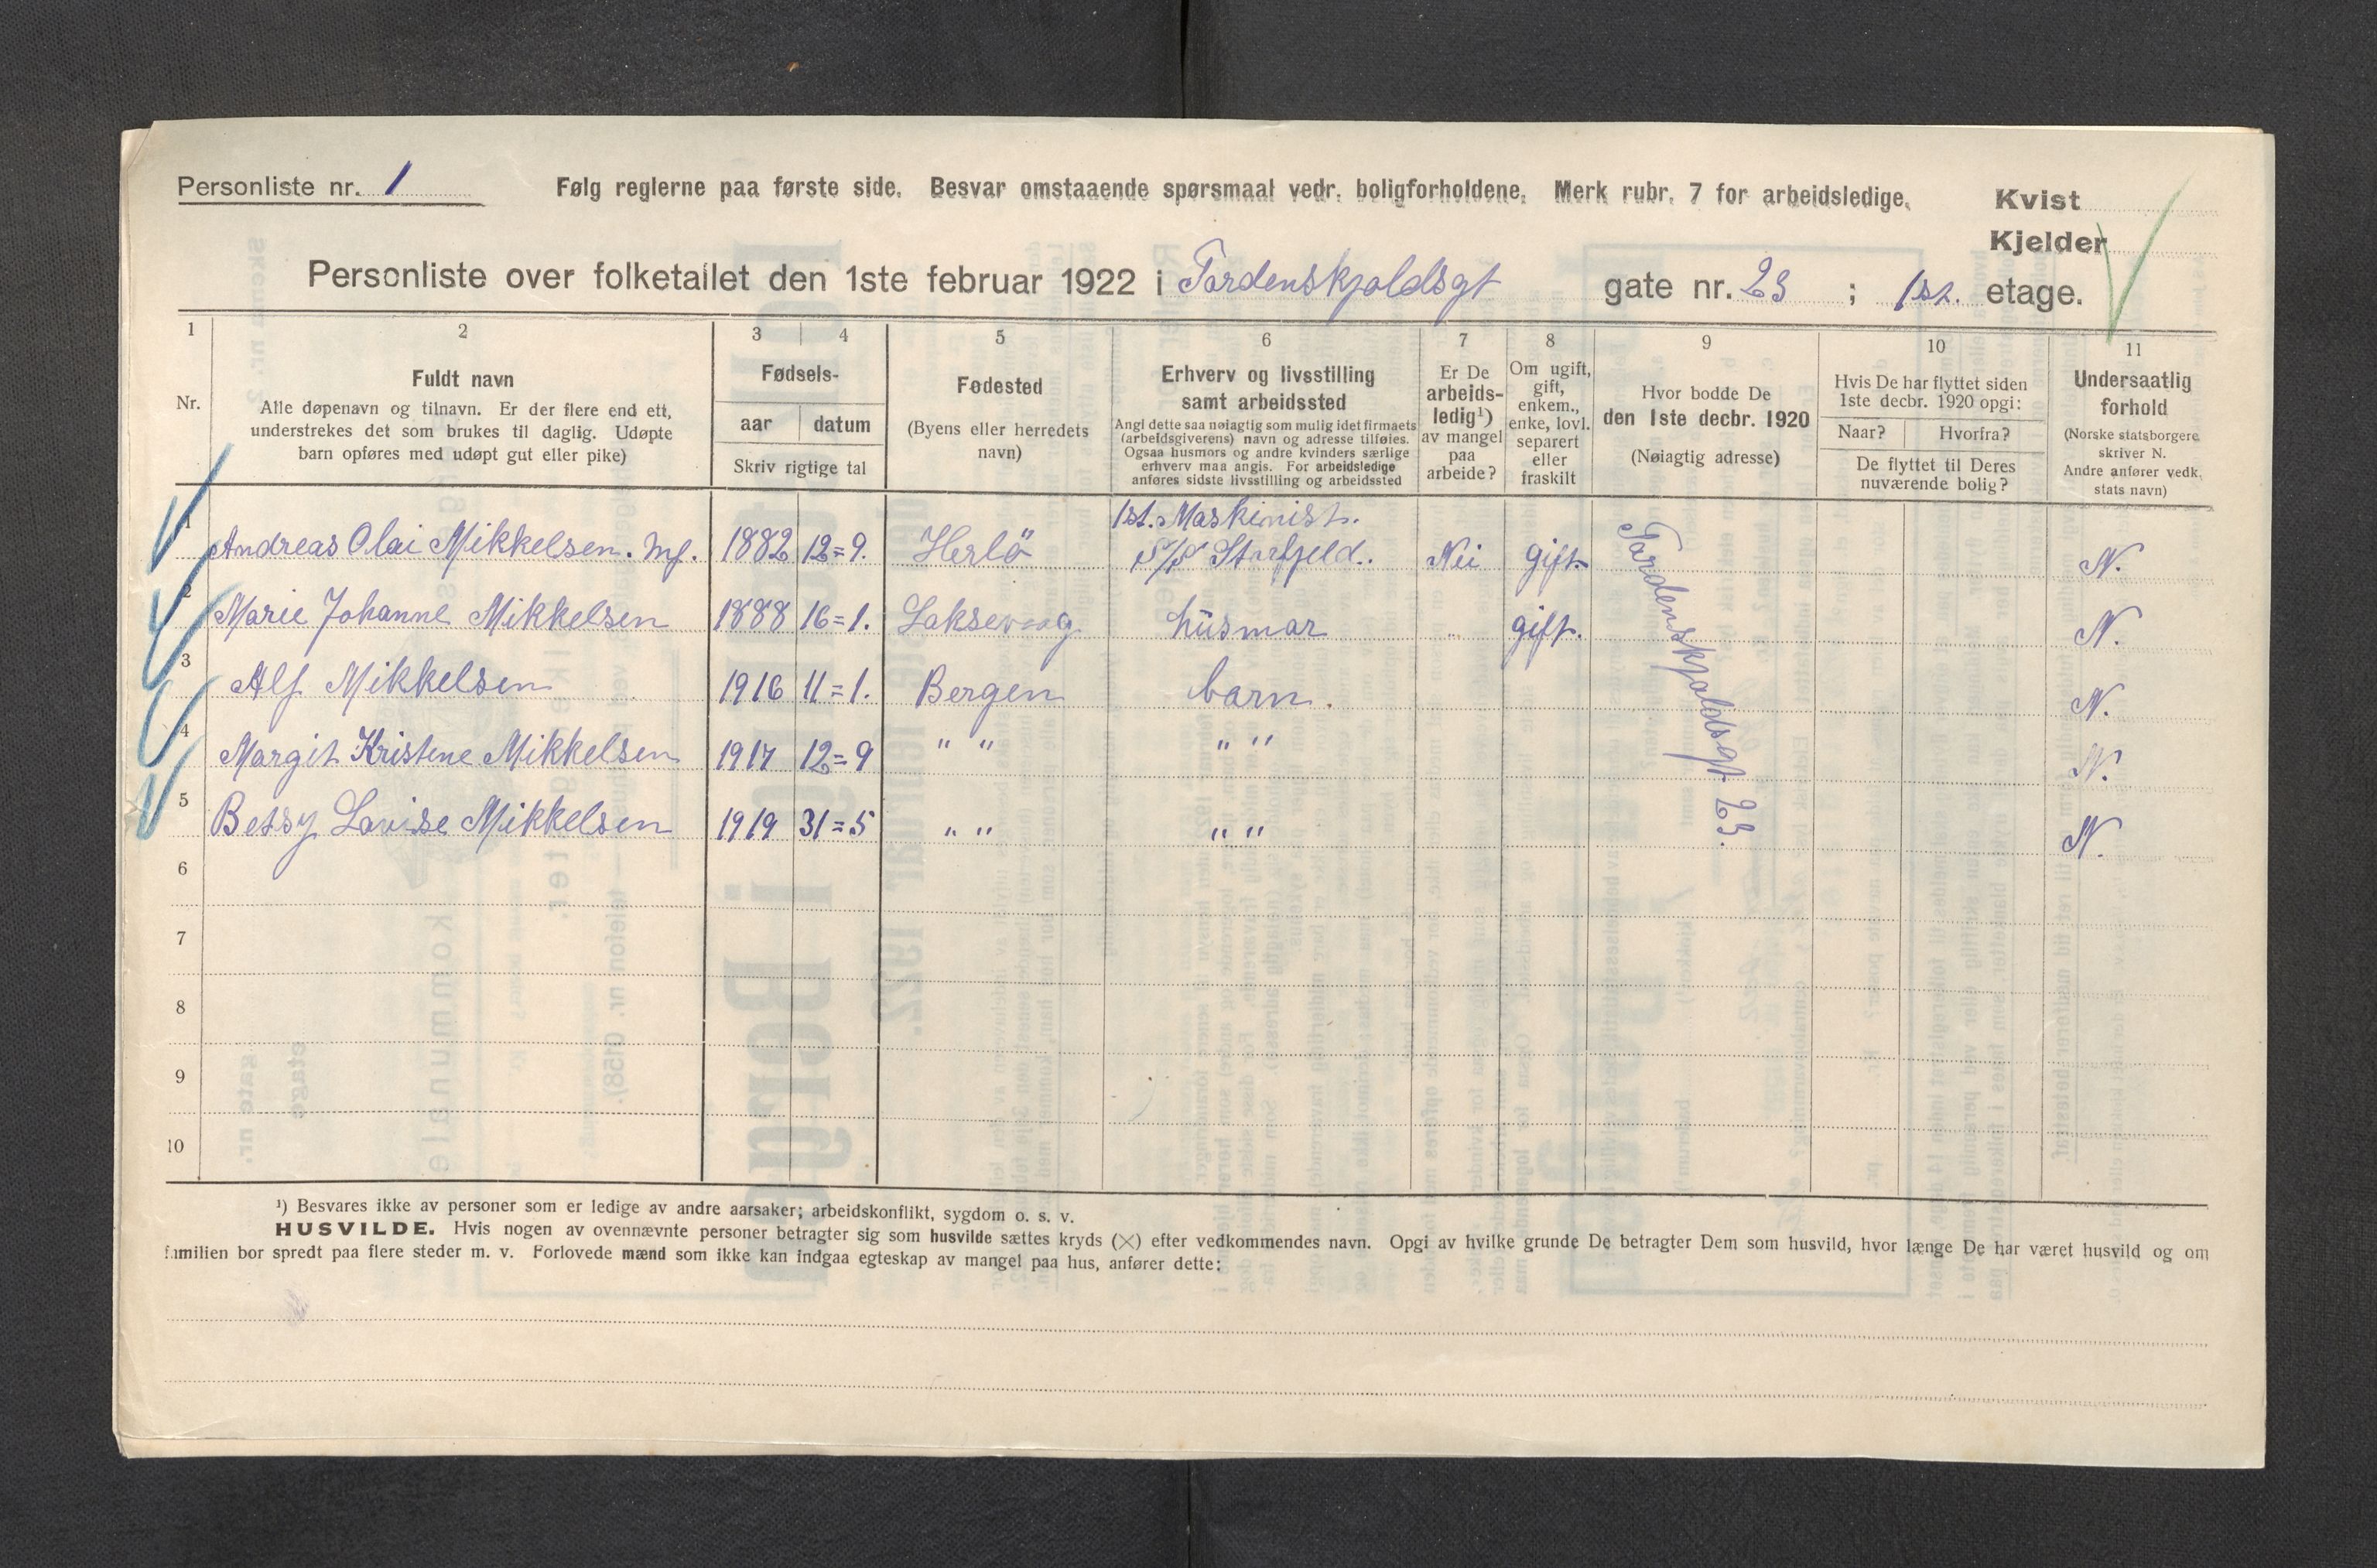 Personliste nr. 1
Følg reglerne paa første side. Besvar omstaaende spørsmaal vedr. boligforholdene. Merk rubr. 7 for arbeidsledige.
Kvist
Kjelder
Personliste over folketallet den 1ste februar 1922 i Tordenskjoldsgt gate nr. 23 ; 1st. etage.
1 2 3 4 5 6 7 8 9 10 11
Nr.
Fuldt navn
Alle døpenavn og tilnavn. Er der flere end ett,
understrekes det som brukes til daglig. Udøpte
barn opføres med udøpt gut eller pike)
Fødsels-
aar datum
Skriv rigtige tal
Fødested
(Byens eller herredets
navn)
Erhverv og livsstilling
samt arbeidssted
Angi dette saa nøiagtig som mulig idet firmaets
(arbeidsgiverens) navn og adresse tilføies.
Ogsaa husmors og andre kvinders særlige
erhverv maa angis. For arbeidsledige
anføres sidste livsstilling og arbeidssted
Er De
arbeids-
ledig¹)
av mangel
paa
arbeide?
Om ugift,
gift,
enkem.,
enke, lovl.
separert
eller
fraskilt
Hvor bodde De
den 1ste decbr. 1920
(Nøiagtig adresse)
Hvis De har flyttet siden
1ste decbr. 1920 opgi:
Naar? Hvorfra?
De flyttet til Deres
nuværende bolig?
Undersaatlig
forhold
(Norske statsborgere
skriver N.
Andre anfører vedk.
stats navn)
1st. Maskinist.
1 Andreas Olai Mikkelsen. Mf. 1882 12=9. Herlö S/S Starfjeld. Nei gift. N.
2 Marie Johanne Mikkelsen 1888 16=1. Laksevaag husmor " gift. N.
3 Alf Mikkelsen 1916 11=1. Bergen barn. N.
4 Margit Kristine Mikkelsen 1917 12=9 " " " " N.
5 Betsy Lovise Mikkelsen 1919 31=5 " " " " N.
Tordenskjoldsgt. 23.
6
7
8
9
10
¹) Besvares ikke av personer som er ledige av andre aarsaker; arbeidskonflikt, sygdom o. s. v.
HUSVILDE. Hvis nogen av ovennævnte personer betragter sig som husvilde sættes kryds (×) efter vedkommendes navn. Opgi av hvilke grunde De betragter Dem som husvild, hvor længe De har været husvild og om
familien bor spredt paa flere steder m. v. Forlovede mænd som ikke kan indgaa egteskap av mangel paa hus, anfører dette: